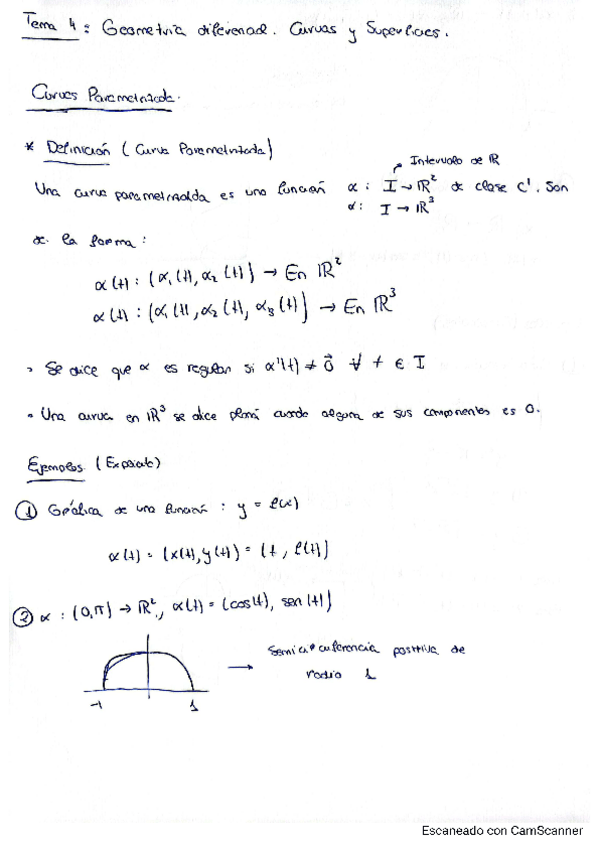 Tema 4: Geometría diferencial. Curvas y Superficies.
Curvas Parametrizada.
* Definición (Curva Parametrizada)
Intervalo de ℝ
Una curva parametrizada es una función α: I → ℝ² de clase C¹. Son
α: I → ℝ³
de la forma:
α(t): (α₁(t), α₂(t)) → En ℝ²
α(t): (α₁(t), α₂(t), α₃(t)) → En ℝ³
• Se dice que α es regular si α'(t) ≠ 0⃗ ∀ t ∈ I
• Una curva en ℝ³ se dice plana cuando alguna de sus componentes es 0.
Ejemplos (Expósito)
① Gráfica de una función: y = f(x)
α(t) = (x(t), y(t)) = (t, f(t))
② α: (0,π) → ℝ², α(t) = (cos(t), sen(t))
Semicircuferencia positiva de
radio 1
-1 1
Escaneado con CamScanner